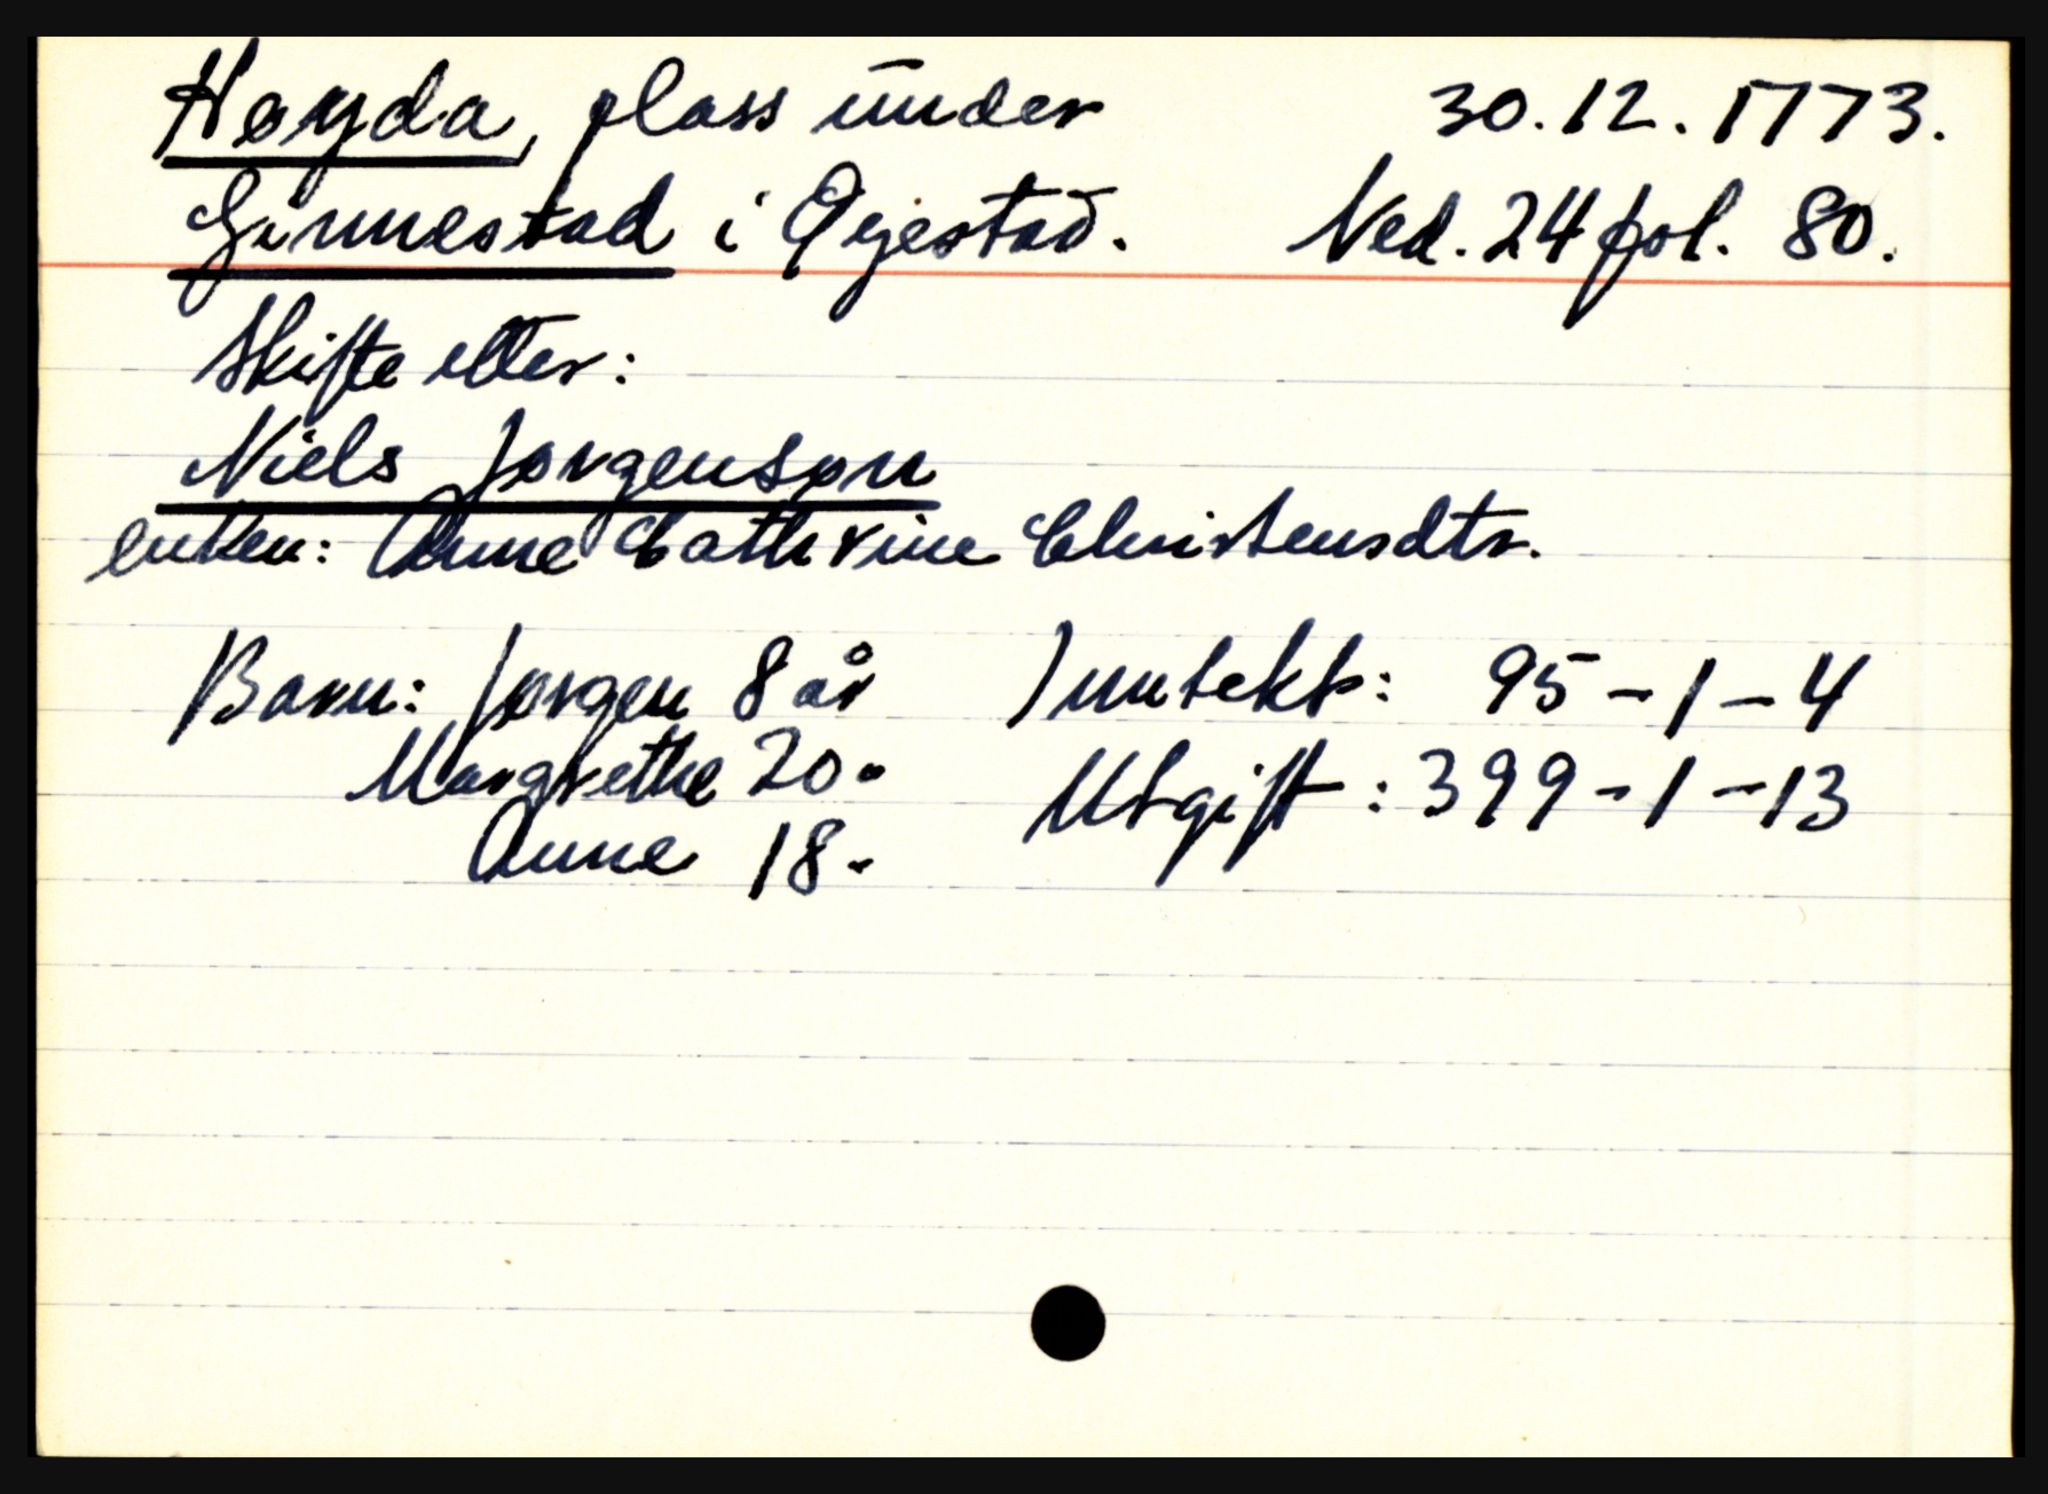 Høyda, plass under 30.12.1773.
Ginnestad i Øyestad. Ned. 24 fol. 80.
Skifte etter:
Niels Jørgensøn
enken: Anne Cathrine Christensdtr.
Barn: Jørgen 8 år Inntekt: 95-1-4
Margrethe 20 " Utgift: 399-1-13
Anne 18 "